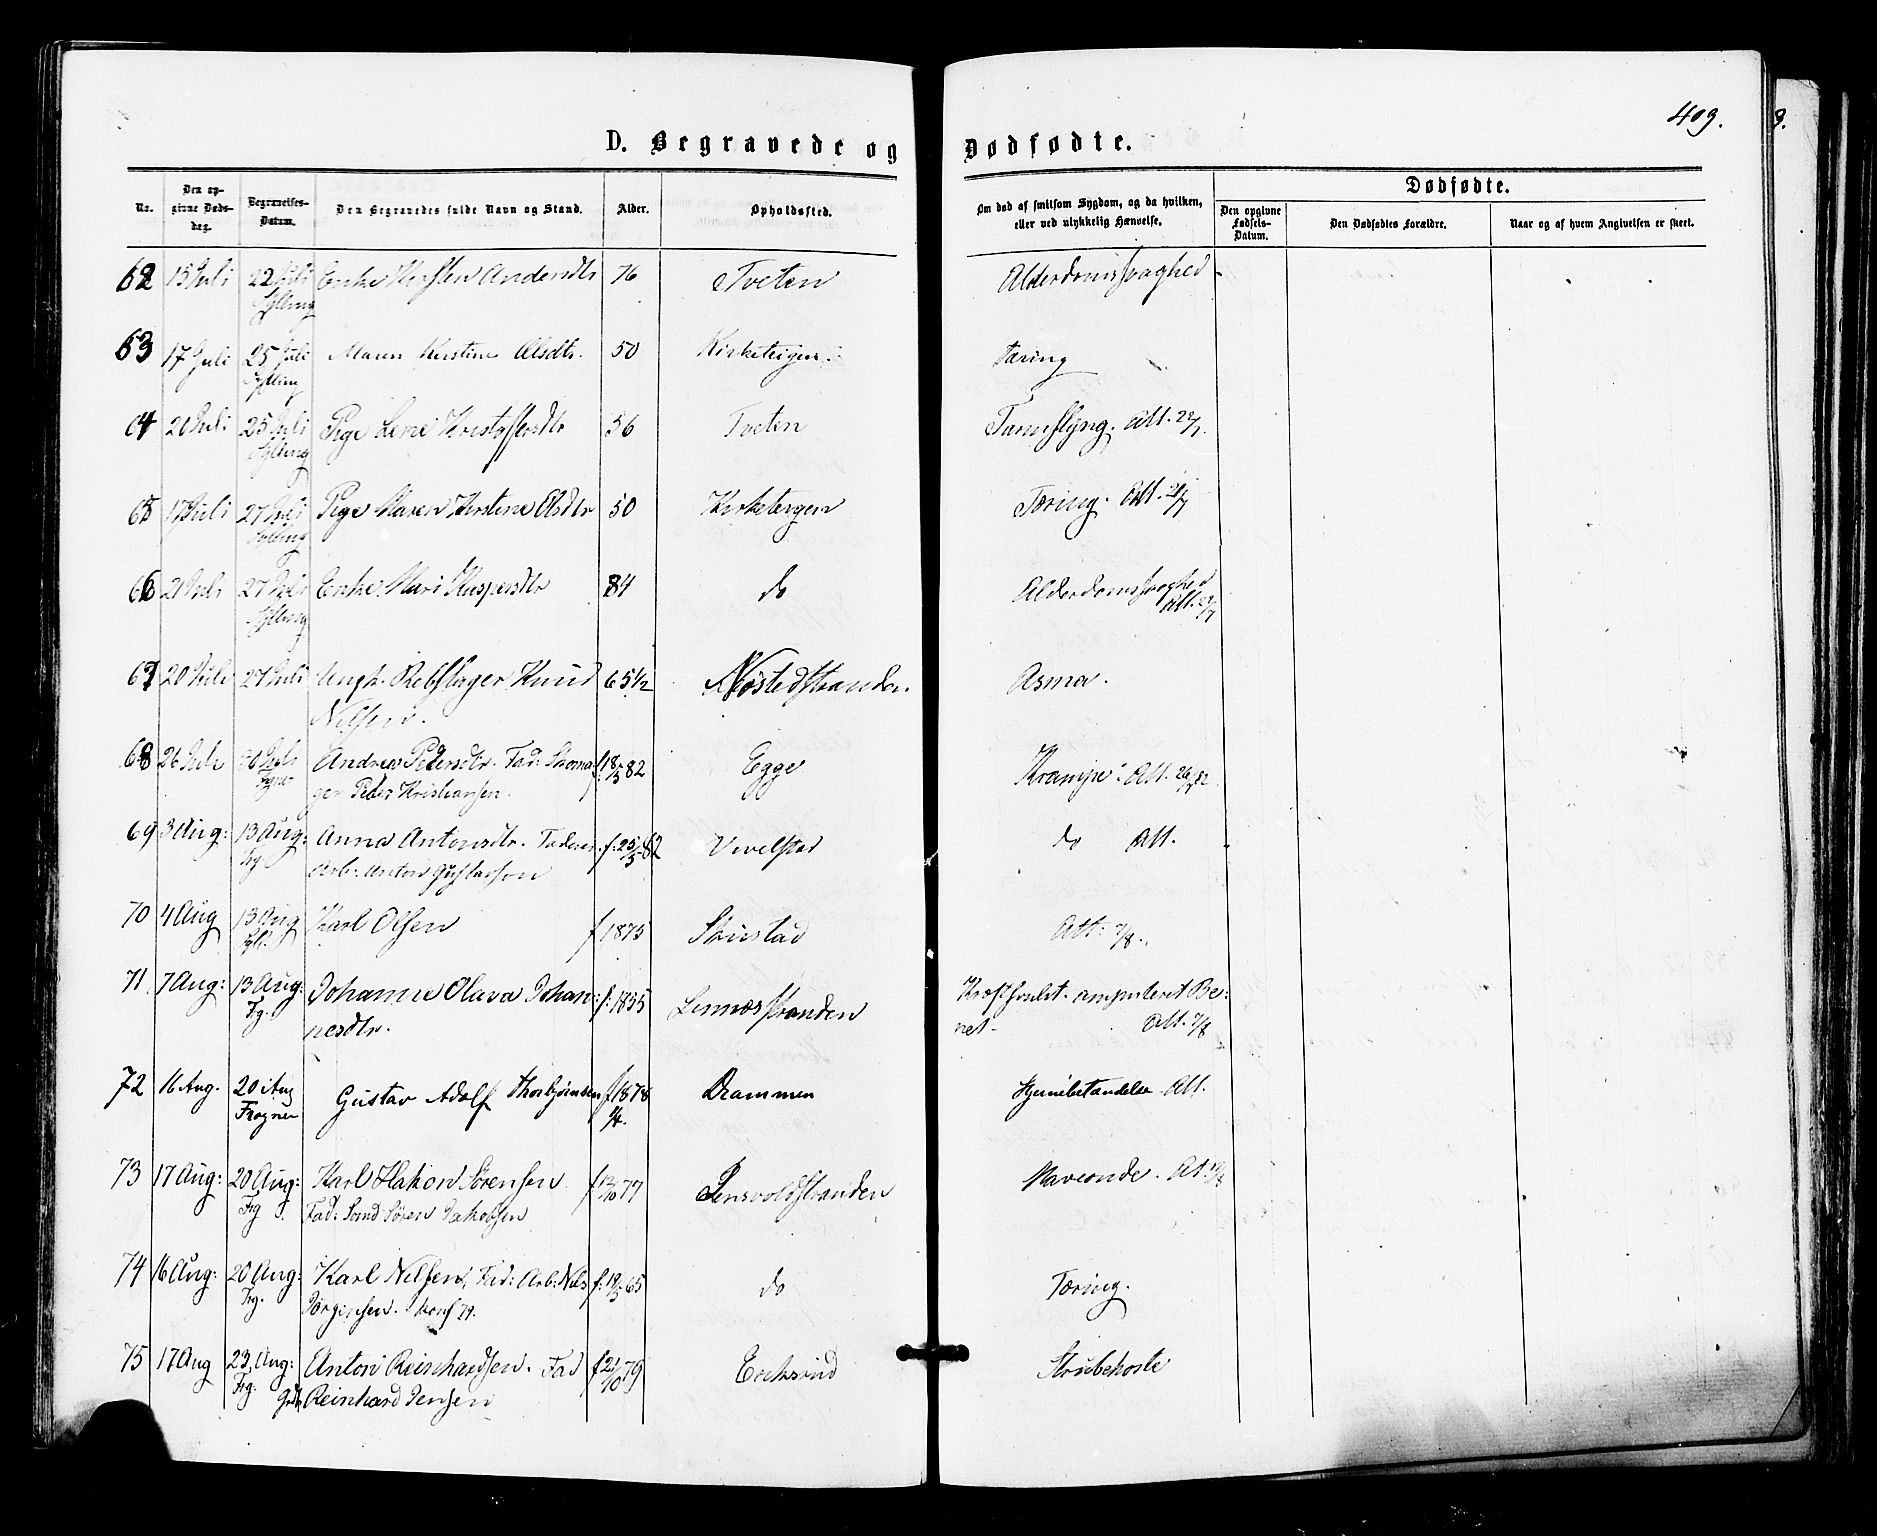 409.
D. Begravede og Dødfødte.
No.
Den opgivne Døds-dag.
Begravelses-Datum.
Den Begravedes fulde Navn og Stand.
Alder.
Opholdssted.
Om død af smitsom Sygdom, og da hvilken, eller ved ulykkelig Hændelse.
Dødfødte.
Den opgivne Fødsels-Datum.
Den Dødfødtes Forældre.
Naar og af hvem Angivelsen er skeet.
62 15 Juli 22 Juli Enke Kirsten Andersdtr 76 Tveten Alderdomssvaghed
Sylling
63 17 Juli 25 Juli Maren Kirstine Olsdtr. 50 Tæring
Sylling
64 20 Juli 25 Juli Pige Lene Kristoffersdtr 56 Tveten Att.
Sylling
65 17 Juli 27 Juli Pige Maren Kirstine Olsdtr 50 Tæring. Att. 21/7
Sylling
66 21 Juli 27 Juli Enke Mari Kaspersdtr 84 do Alderdomssvaghed
Sylling Att. 22/7
67 20 Juli 27 Juli Ungk. Rebslager Knud 65 1/2 Nøstedstranden. Asma.
Nilsen.
68 26 Juli Juli Andrea Petersdtr. Fad: Skoma- f. 18/5 82 Egge Krampe: Att. 26/7 82
ger Peder Kristiansen.
69 3 Aug: 13 Aug: Anna Antonsdtr. Faderen f. 25/5 82 Vivelstad do Att.
Frg. Arb: Anton Gustavson
70 4 Aug 13 Aug Karl Olsen f 1875 Skustad Att: 7/8.
Syl.
71 7 Aug: 13 Aug: Johanne Olava Johan- f. 1855 Linnæsstranden Kræftsvulst. amputeret Be-
Frg. nesdtr. net. Att. 7/8
72 16 Aug. 20 Aug Gustav Adolf Thorbjørnsen f 1878 Drammen Hjernebetændelse Att.
Frogner
73 17 Aug: 20 Aug: Karl Hakon Sørensen f 77 Jensvoldstranden Att.
Frg Fad: Søren Jakobsen
74 16 Aug: 20 Aug: Karl Nilsen, Fad: Arb: Nils f. 65 do Tæring.
Frg. Jørgensen. Konf 79.
75 17 Aug 23 Aug: Anton Reinhardsen. Fad f 21/10 79 Eriksrud Strubehoste
Frg. Grdb. Reinhard Jensen